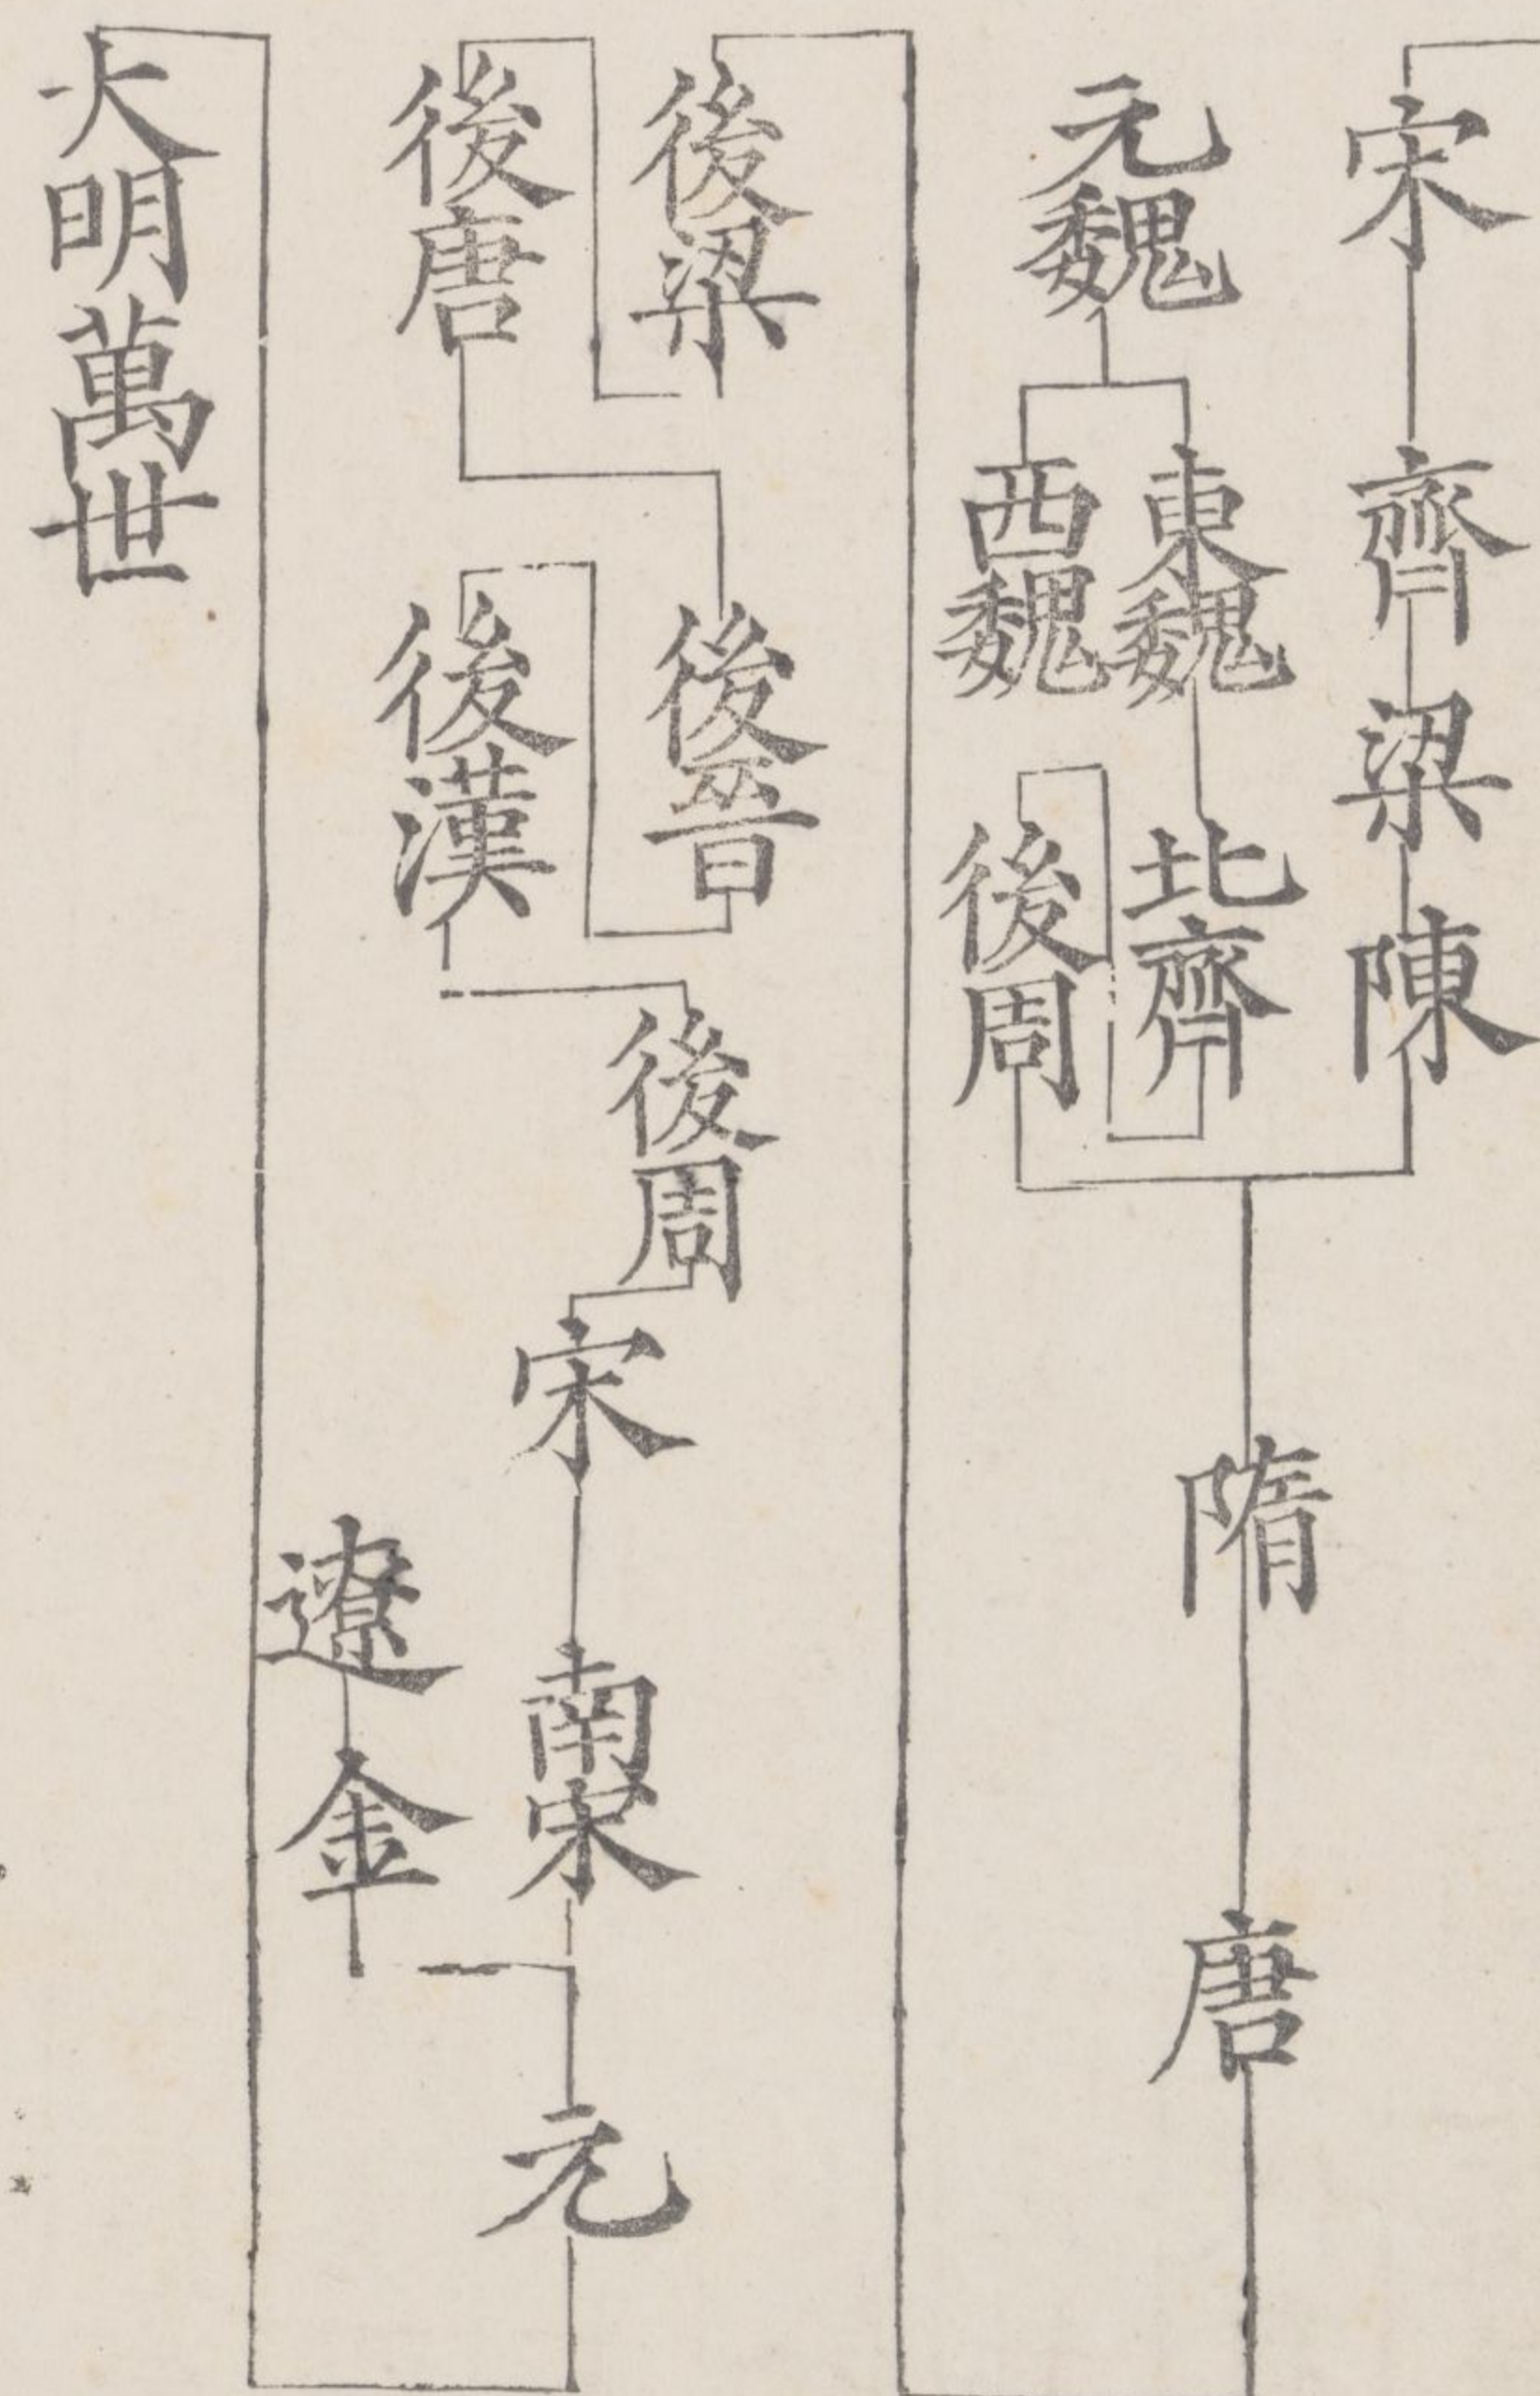 宋
齊
梁
陳
元魏
東魏
西魏
北齊
後周
隋
唐
後梁
後唐
後晉
後漢
後周
宋
南宋
遼
金
元
大明萬世